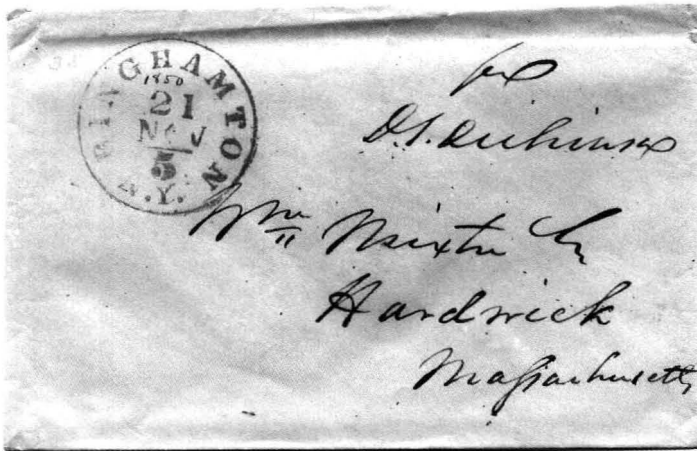 BINGHAMTON N.Y.
1850
21
NOV
5
D.S. Dickinson
Wm Mixter
Hardwick
Massachusetts